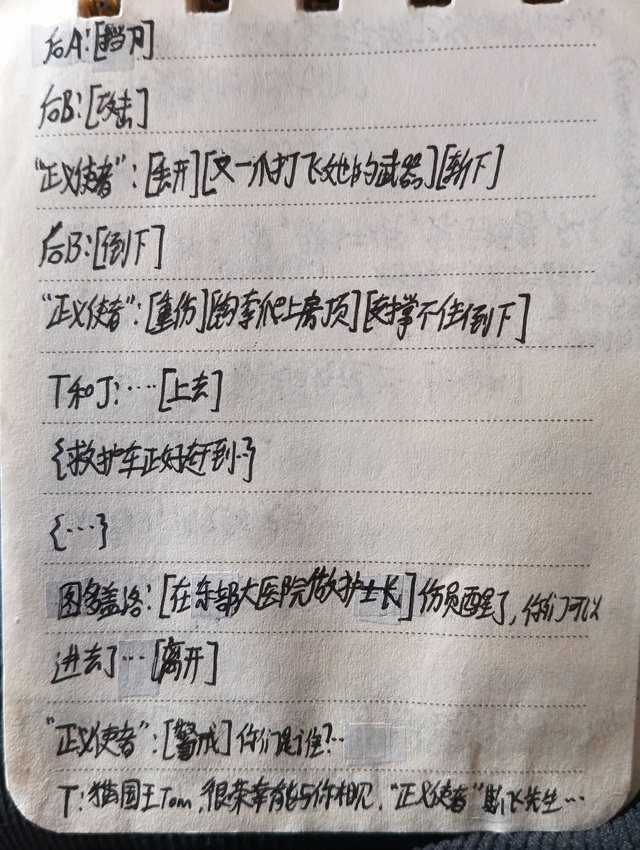 后A:[挡刀]
后B:[攻击]
"正义使者":[丢开][又一爪打飞她的武器][斩下]
后B:[倒下]
"正义使者":[重伤][钩索爬上房顶][支撑不住倒下]
T和J:…[上去]
{救护车正好赶到…}
{…}
图多盖洛:[在东部大医院做护士长]伤员醒了,你们可以
进去了…[离开]
"正义使者":[警戒]你们是谁?…
T:猫国王Tom,很荣幸能与你相见,"正义使者"彭飞先生…